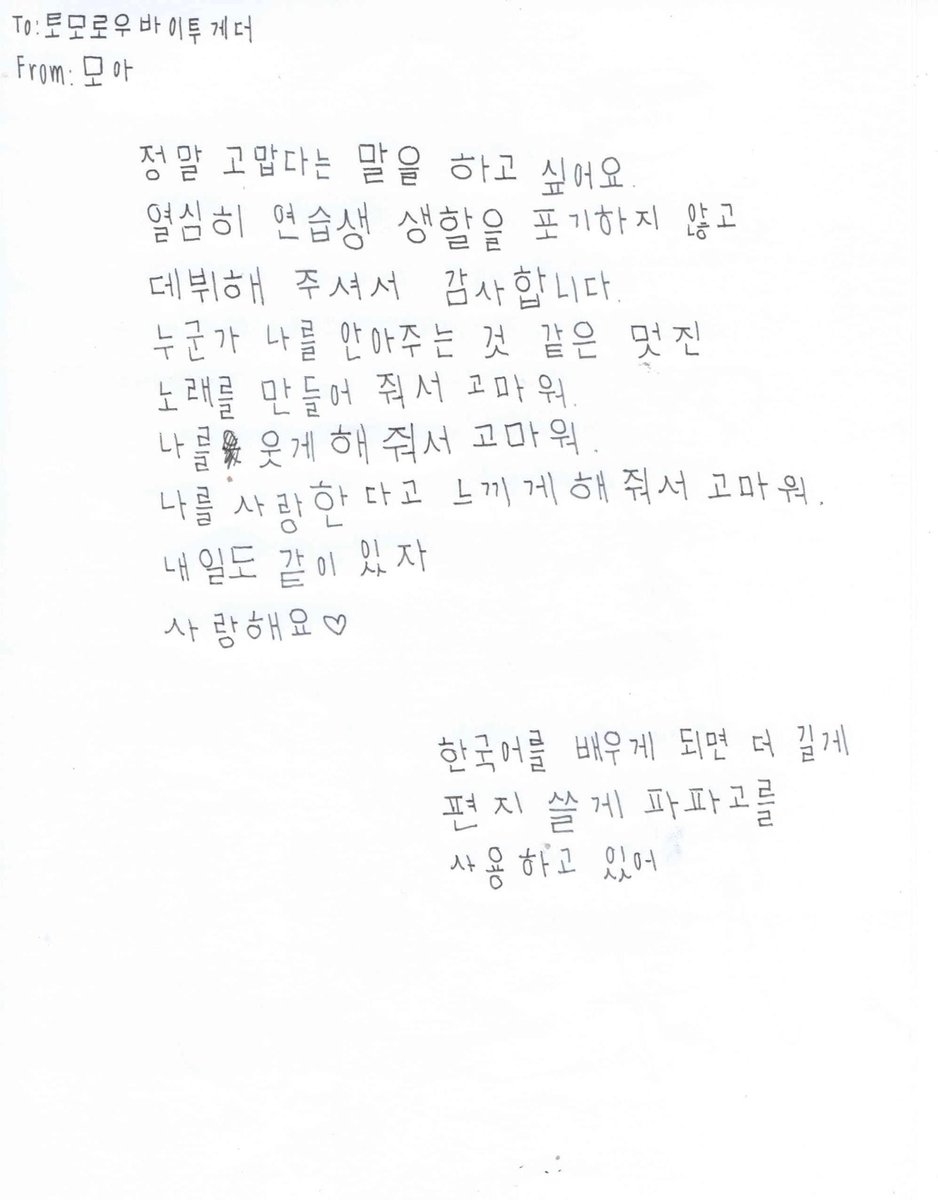 To: 토모로우바이투게더
From: 모아
정말 고맙다는 말을 하고 싶어요.
열심히 연습생 생활을 포기하지 않고
데뷔해 주셔서 감사합니다.
누군가 나를 안아주는 것 같은 멋진
노래를 만들어 줘서 고마워.
나를 웃게 해 줘서 고마워.
나를 사랑한다고 느끼게 해 줘서 고마워.
내일도 같이 있자
사랑해요♡
한국어를 배우게 되면 더 길게
편지 쓸게 파파고를
사용하고 있어